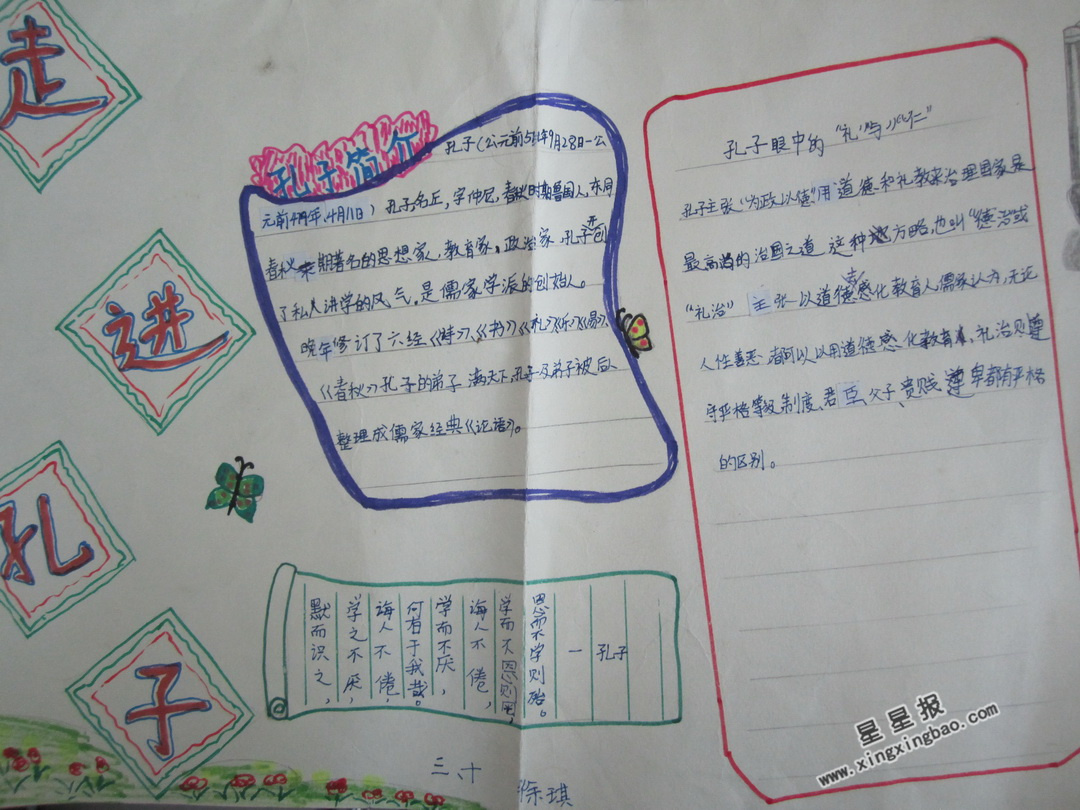 走
进
孔
子
孔子简介
孔子(公元前551年9月28日—公
元前479年,4月11日) 孔子名丘,字仲尼,春秋时期鲁国人,东周
春秋末期著名的思想家、教育家、政治家 孔子开创
了私人讲学的风气。是儒家学派的创始人。
晚年修订了六经《诗》、《书》《礼》《乐》《易》、
《春秋》孔子的弟子满天下,孔子及弟子被后人
整理成儒家经典《论语》。
孔子眼中的“礼”与“仁”
孔子主张“为政以德”用道德和礼教来治理国家是
最高尚的治国之道 这种方略,也叫“德治或
“礼治” 主张以道德去感化教育人儒家认为,无论
人性善恶 都可以以用道德感化教育人 礼治则遵
守严格等级制度、君臣、父子、贵贱 尊卑都有严格
的区别。
默而识之,
学之不厌,
诲人不倦,
何有于我哉。
学而不厌,
诲人不倦,
学而不思则罔,
思而不学则殆。
一
孔子
三、十
徐琪
星星报
www.xingxingbao.com